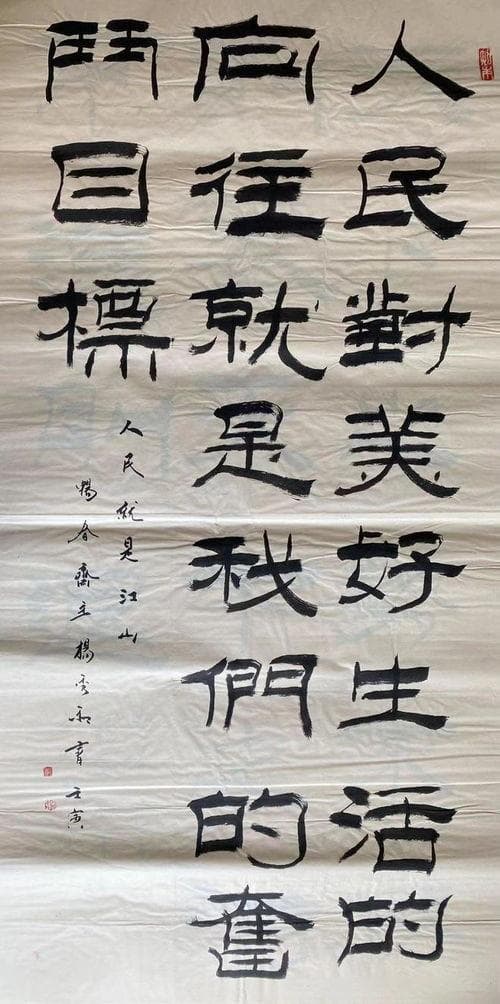 人民對美好生活的
向往就是我們的奮
鬥目標
人民就是江山
楊春齋主楊秀和書壬寅